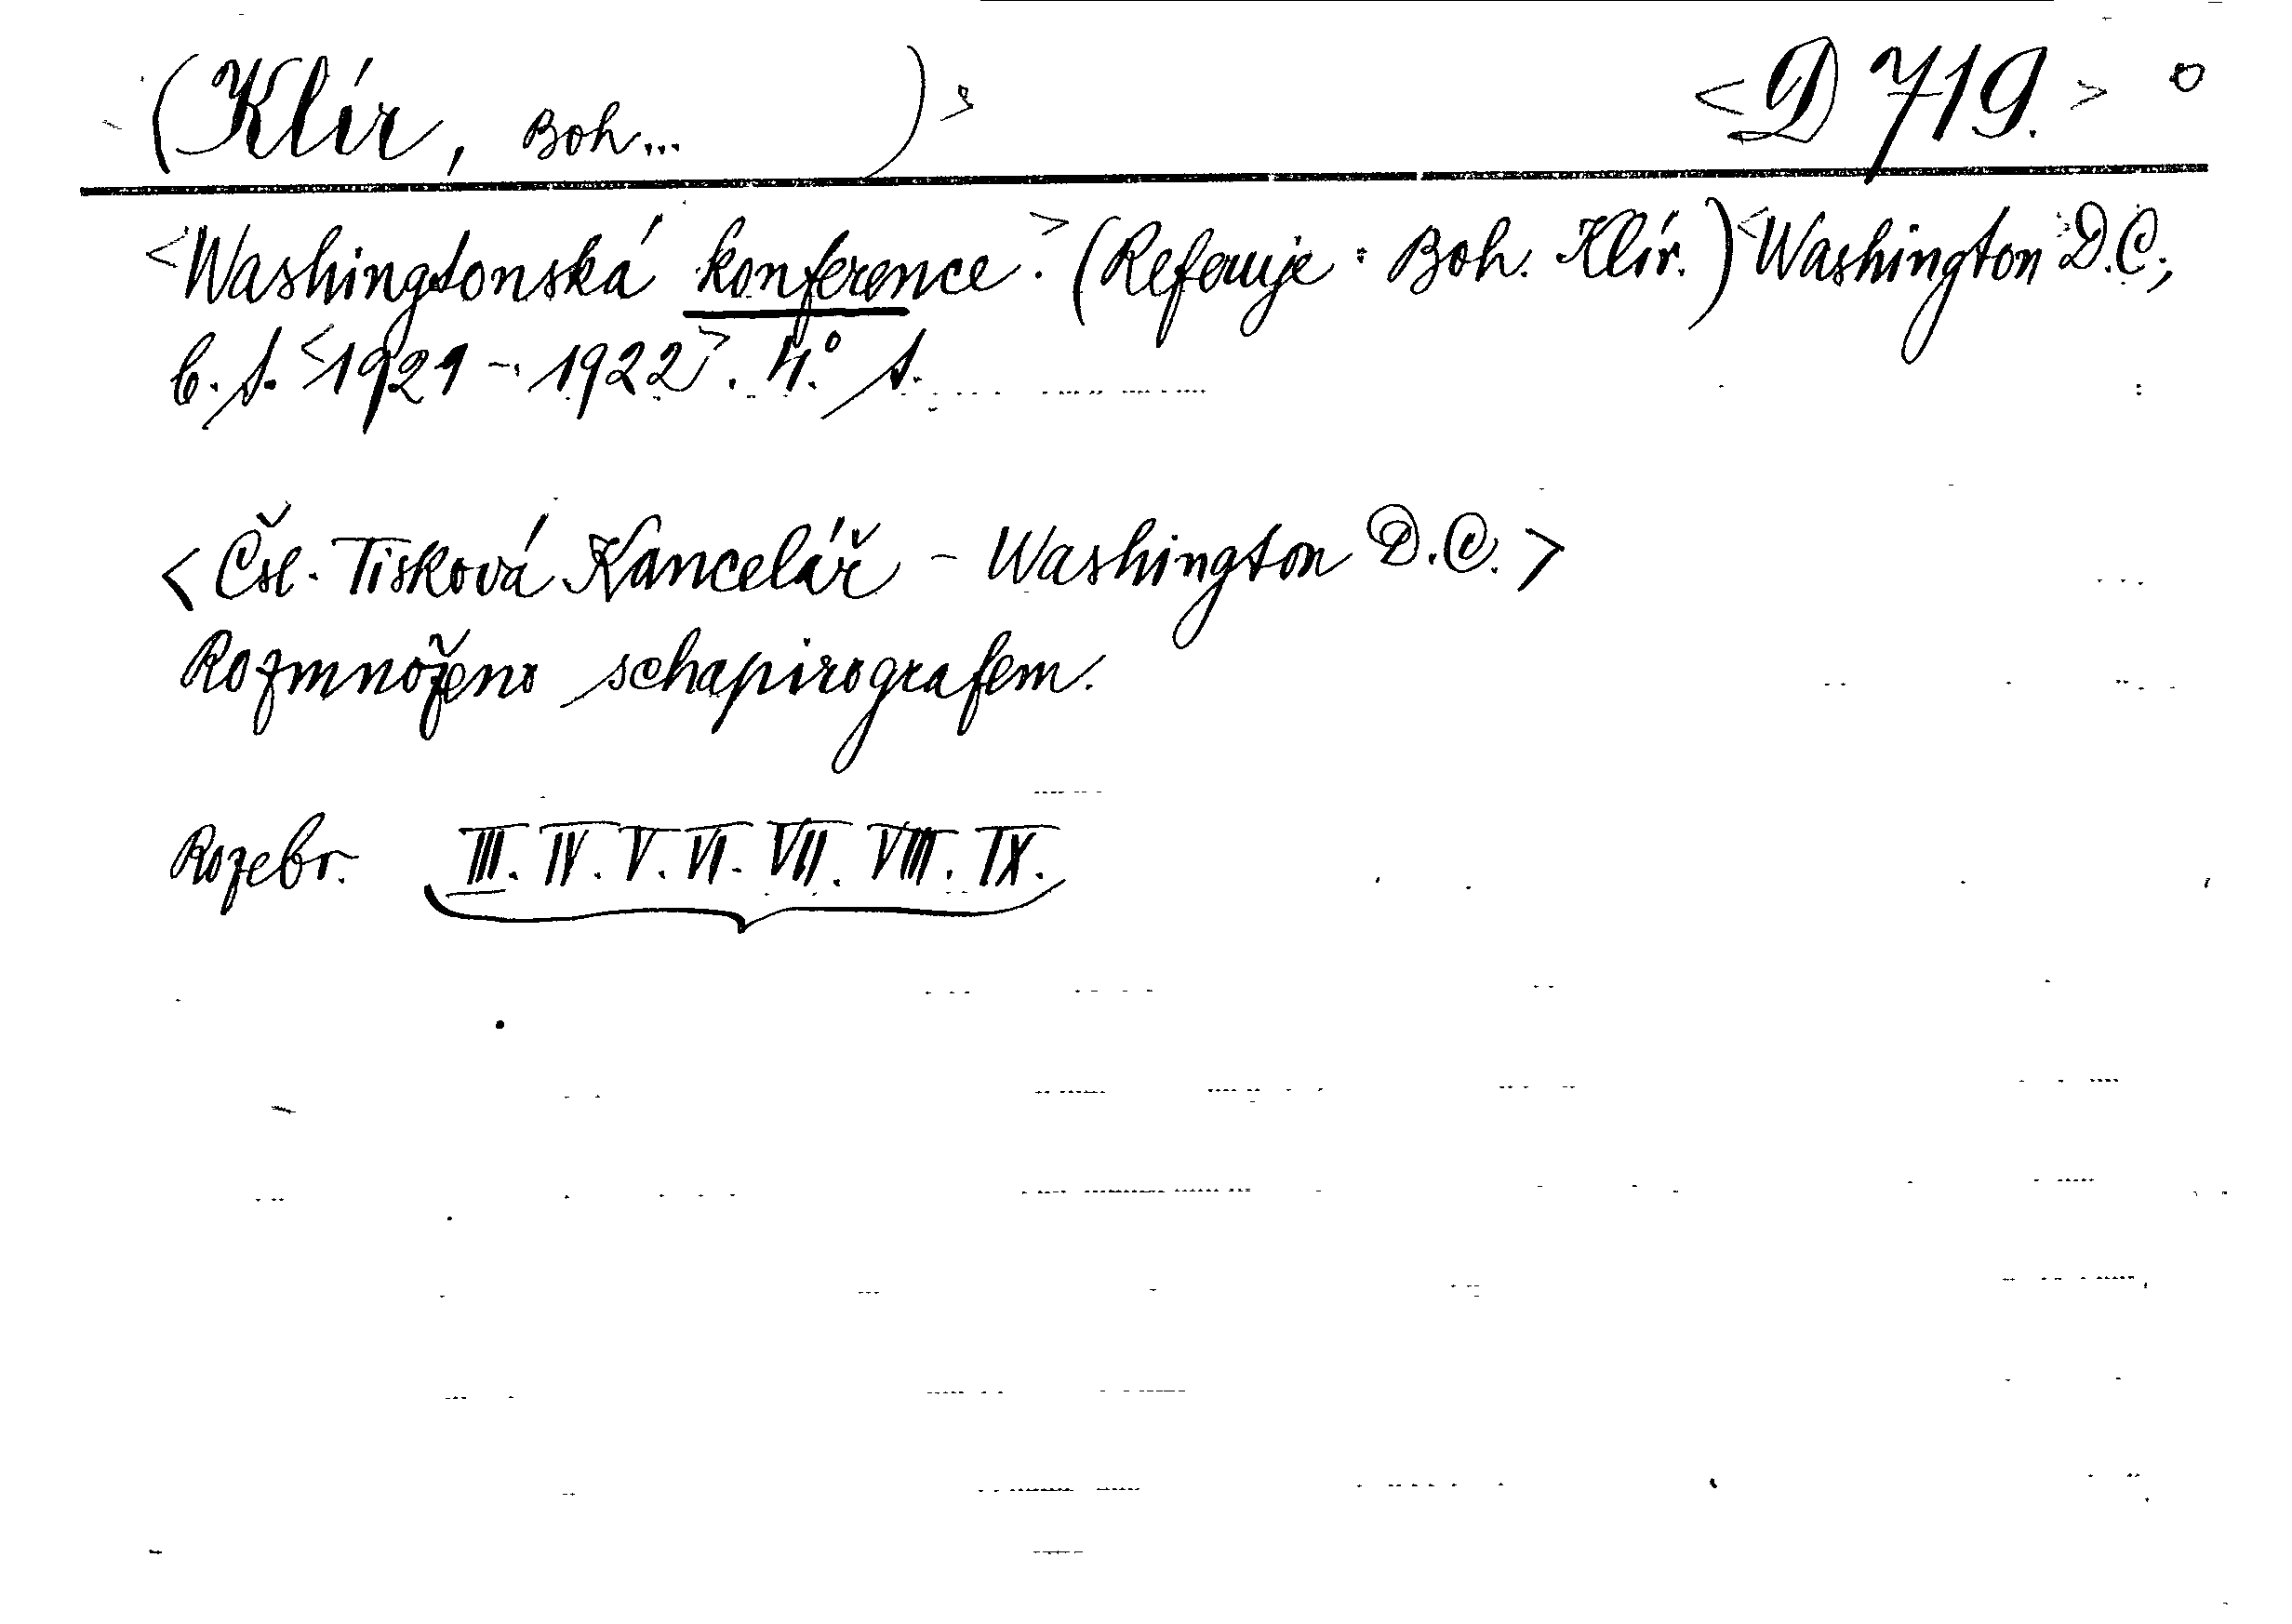 (Klír, Boh... ) <D 719.>
<Washingtonská konference.> (Referuje: Boh. Klír.) <Washington D.C.;
b. r. <1921 - 1922>. 4.° s.
<Čsl. Tisková Kancelář - Washington D.C.>
Rozmnoženo schapirografem.
Rozebr. III. IV. V. VI. VII. VIII. IX.